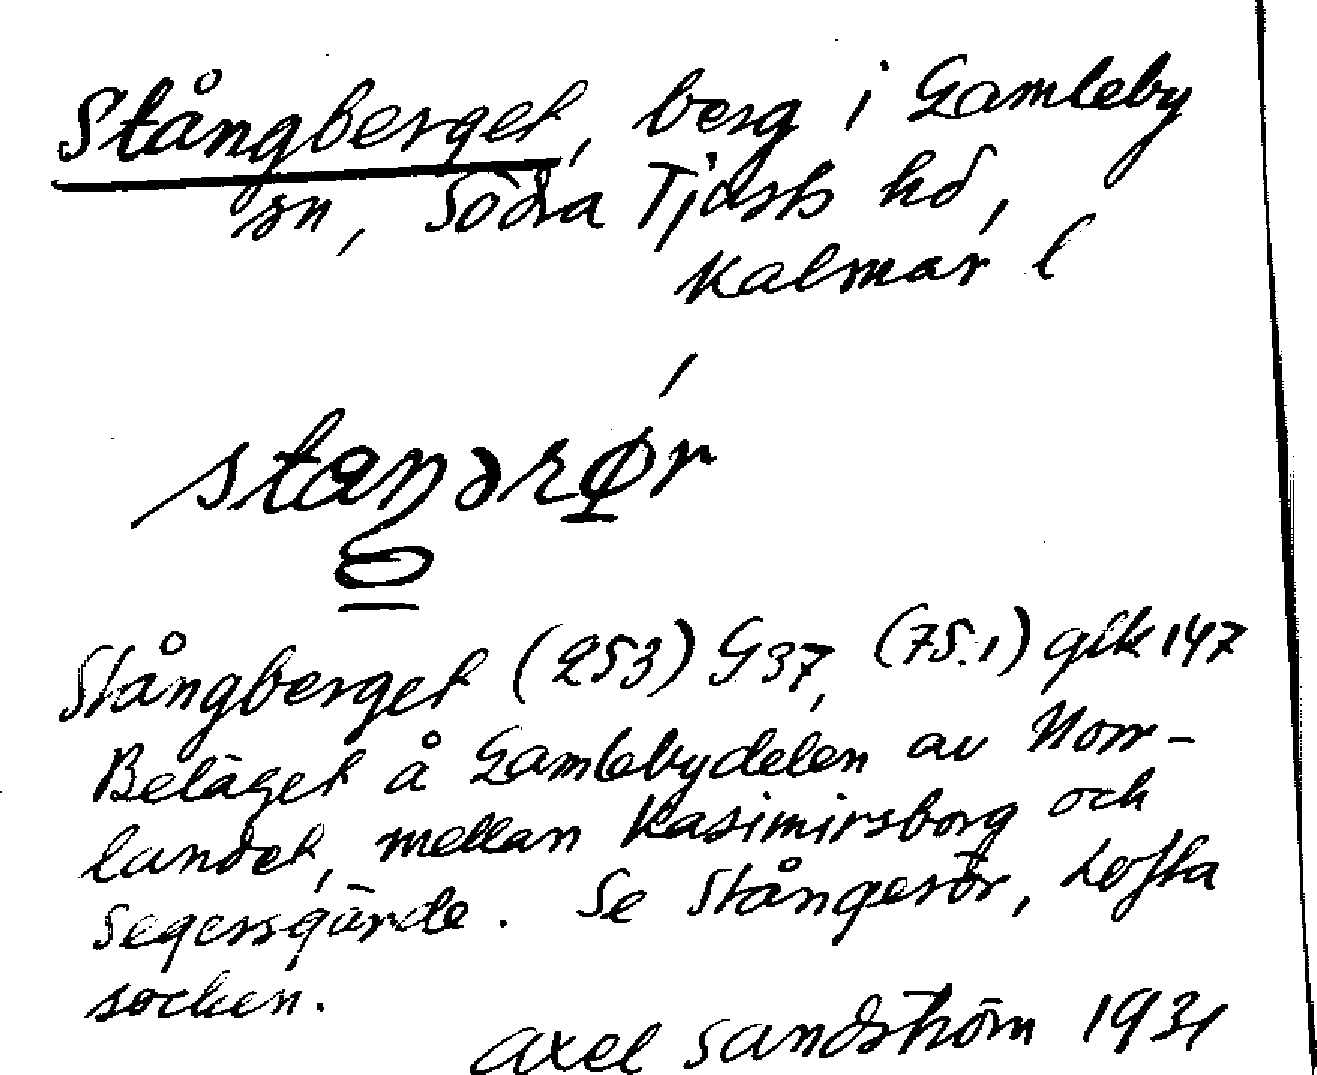 Stångberget, berg i Gamleby
sn, Södra Tjusts hd,
Kalmar l
Stångberget (253) G37, (75.1) glk 147
Beläget å Gamlebydelen av Norr-
landet, mellan Kasimirsborg och
Segersgärde. Se Stångerör, Lofta
socken.
Axel Sandström 1931